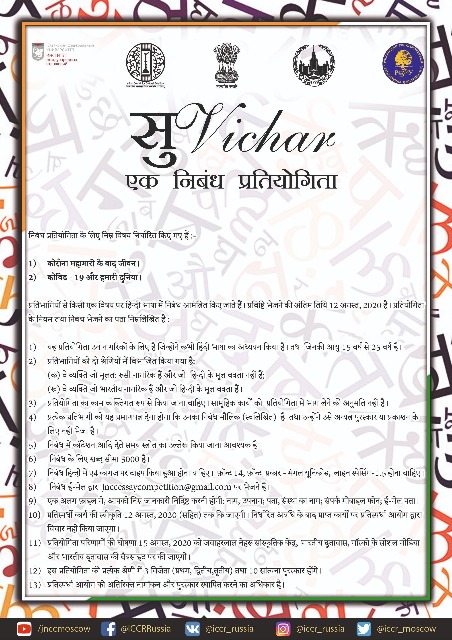 सुVichar
एक निबंध प्रतियोगिता
निबंध प्रतियोगिता के लिए निम्न विषय निर्धारित किए गए हैं :-
1) कोरोना महामारी के बाद जीवन।
2) कोविड - 19 और हमारी दुनिया।
प्रतिभागियों से किसी एक विषय पर हिन्दी भाषा में निबंध आमंत्रित किए जाते हैं। प्रविष्टि भेजने की अंतिम तिथि 12 अगस्त, 2020 है। प्रतियोगिता
के नियम तथा निबंध भेजने का पता निम्नलिखित है :
1) यह प्रतियोगिता उन नागरिकों के लिए है जिन्होंने कभी हिंदी भाषा का अध्ययन किया है। तथा जिनकी आयु 15 वर्ष से 25 वर्ष है।
2) प्रतिभागियों को दो श्रेणियों में विभाजित किया गया है:
(क) वे व्यक्ति जो मूलतः रूसी नागरिक हैं और जो हिन्दी के मूल वक्ता नहीं हैं;
(ख) वे व्यक्ति जो भारतीय नागरिक हैं और जो हिन्दी के मूल वक्ता हैं।
3) प्रतियोगिता का काम व्यक्तिगत रूप से किया जाना चाहिए। सामूहिक कार्यों को प्रतियोगिता में भाग लेने की अनुमति नहीं है।
4) प्रत्येक प्रतिभागी को यह प्रमाणपत्र देना होगा कि उनका निबंध मौलिक (स्वलिखित) है तथा उन्होंने उसे अन्यत्र पुरस्कार या प्रकाशन के
लिए नहीं भेजा है।
5) निबंध में कोटेशन आदि देते समय स्रोत का उल्लेख किया जाना आवश्यक है
6) निबंध के लिए शब्द सीमा 3000 है।
7) निबंध हिन्दी में ए4 कागज पर टाइप किया हुआ होना चाहिए। फ़ॉन्ट 14, फ़ॉन्ट प्रकार - मंगल यूनिकोड, लाइन स्पेसिंग -1.5 होना चाहिए
8) निबंध ई-मेल द्वारा jnccessaycompetition@gmail.com पर भेजने हैं।
9) एक अलग फ़ाइल में, आपको निम्न जानकारी निर्दिष्ट करनी होगी: नाम, उपनाम; पता, संस्था का नाम; संपर्क मोबाइल फोन; ई-मेल पता
10) प्रतिस्पर्धी कार्य की स्वीकृति 12 अगस्त, 2020 (सहित) तक कि जाएगी। निर्धारित अवधि के बाद प्राप्त कार्यों पर प्रतिस्पर्धा आयोग द्वारा
विचार नहीं किया जाएगा।
11) प्रतियोगिता परिणामों की घोषणा 15 अगस्त, 2020 को जवाहरलाल नेहरू सांस्कृतिक केंद्र, भारतीय दूतावास, मॉस्को के सोशल मीडिया
और भारतीय दूतावास की वैबसाइट पर की जाएगी।
12) इस प्रतियोगिता की प्रत्येक श्रेणी में 3 विजेता (प्रथम, द्वितीय,तृतीय) तथा 10 सांत्वना पुरस्कार होंगे।
13) प्रतिस्पर्धा आयोग को अतिरिक्त नामांकन और पुरस्कार स्थापित करने का अधिकार है।
/jnccmoscow @ICCRRussia @iccr_russia @iccr_russia /jnccmoscow